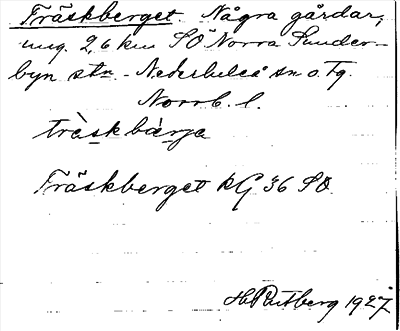 Träskberget. Några gårdar,
ung. 2,6 km SO Norra Sunder-
byn stn. - Nederluleå sn o. tg.
Norrb. l.
tràskbärja
Träskberget kG 36 SO
1927